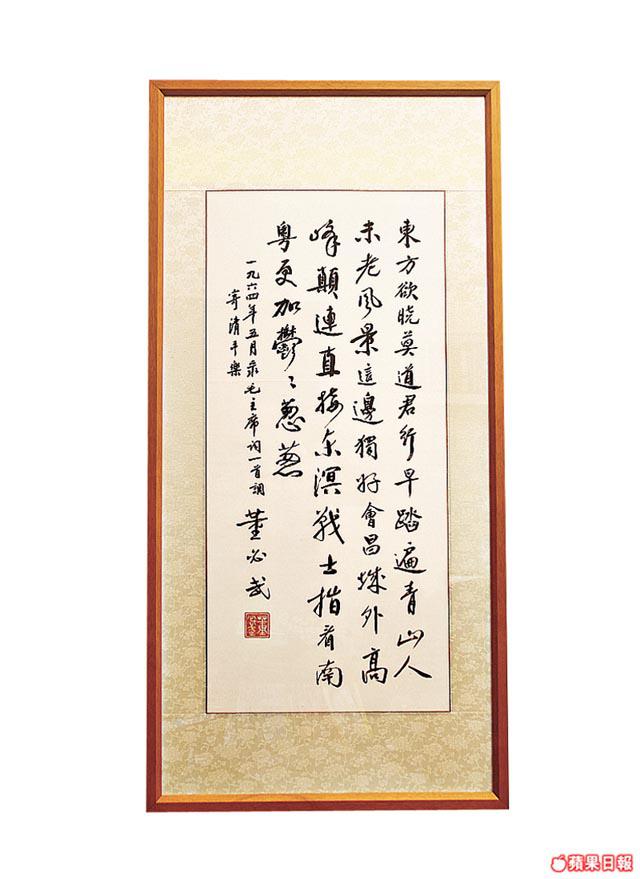 東方欲晓莫道君行早踏遍青山人
未老風景這邊獨好會昌城外高
峰顛連直接东溟战士指看南
粤更加鬱〻葱葱
一九六四年五月录毛主席词一首調
寄清平樂
董必武
蘋果日報